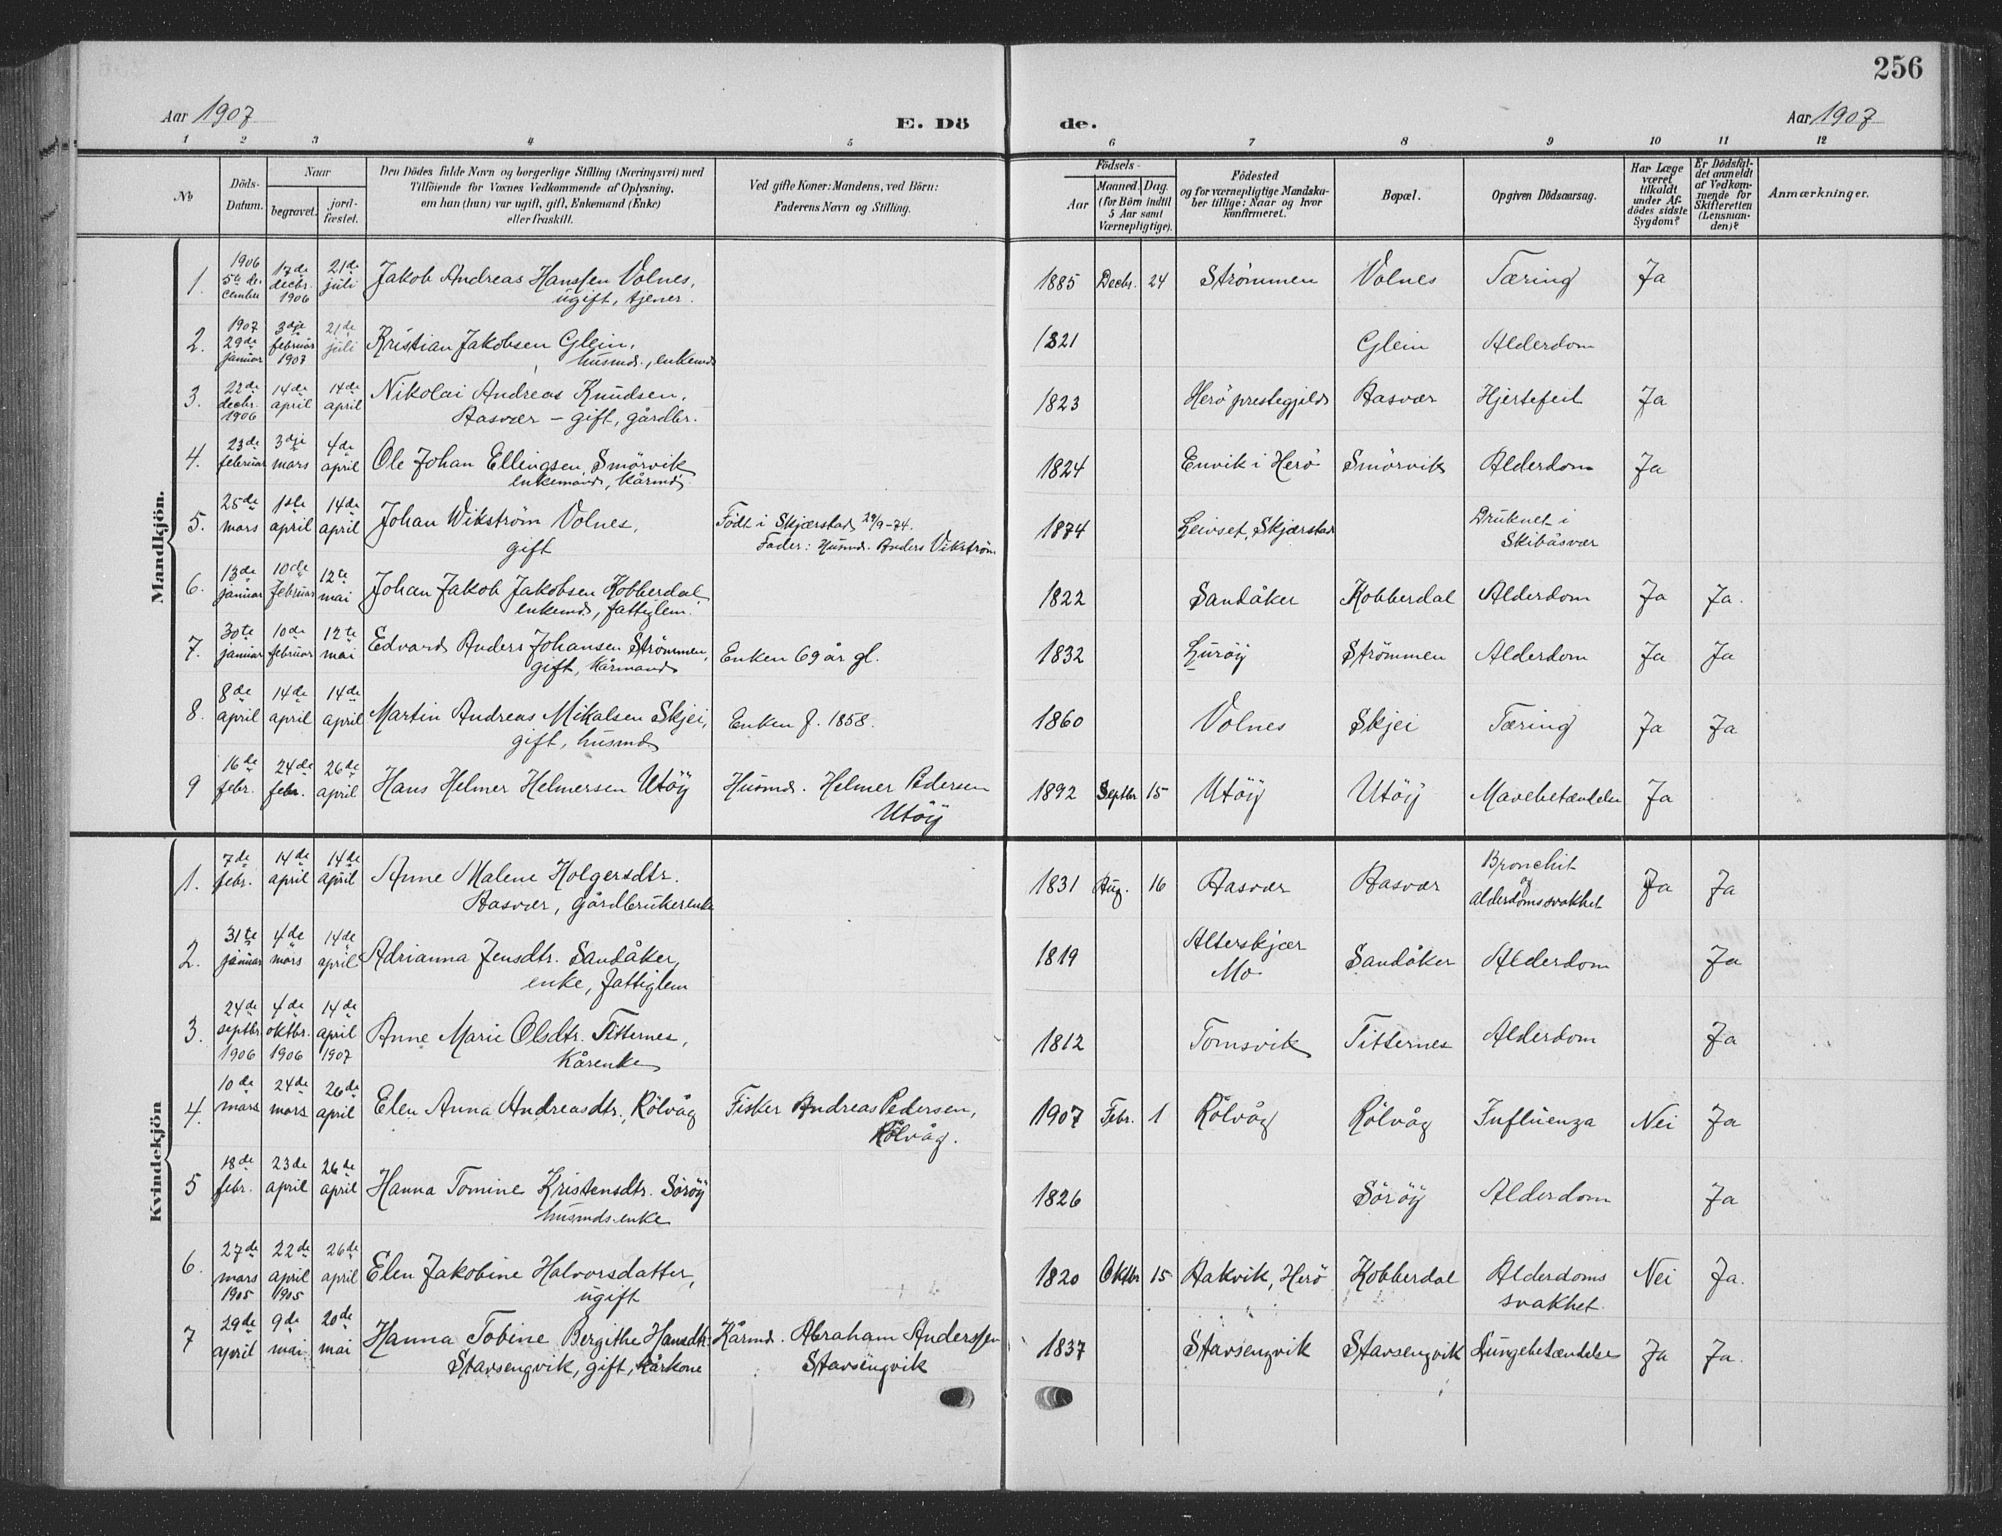 256
Aar 1907
E. Dö de.
Aar 1907
1 2 3 4 5 6 7 8 9 10 11 12
No
Döds-Datum.
Naar
begravet.
jord-fæstet.
Den Dödes fulde Navn og borgerlige Stilling (Næringsvei) med
Tilföiende for Voxnes Vedkommende af Oplysning,
om han (hun) var ugift, gift, Enkemand (Enke)
eller fraskilt.
Ved gifte Koner: Mandens, ved Börn:
Faderens Navn og Stilling.
Födsels-
Aar
Maaned. Dag.
(for Börn indtil
5 Aar samt
Værnepligtige).
Födested
og for værnepligtige Mandska-
ber tillige: Naar og hvor
konfirmeret.
Bopæl.
Opgiven Dödsaarsag.
Har Læge
været
tilkaldt
under Af-
dödes sidste
Sygdom?
Er Dödsfal-
det anmeldt
af Vedkom-
mende for
Skifteretten
(Lensman-
den)?
Anmærkninger.
Mandkjön.
1. 1906 5te december 17de decbr. 1906 21de juli Jakob Andreas Hanssen Volnes, 1885 Decbr. 24 Strømmen Volnes Tæring Ja
ugift, tjener.
2. 1907 29de januar 3dje februar 1907 21de juli Kristian Jakobsen Glein, 1821 Glein Alderdom
husmd., enkemd
3. 22de decbr. 1906 14de april 14de april Nikolai Andreas Knudsen, 1823 Herö prestegjeld Aasvær Hjertefeil Ja
Aasvær – gift, gårdbr.
4. 23de februar 3dje mars 4de april Ole Johan Ellingsen, Smörvik 1824 Envik i Herö Smörvik Alderdom Ja
enkemand, kårmd.
5. 25de mars 1ste april 14de april Johan Wikström Volnes, Født i Skjærstad 29/9-74. 1874 Leivset, Skjærstad Druknet i
gift Fader: Husmd. Anders Vikström Skibåsvær
6. 13de januar 10de februar 12te mai Johan Jakob Jakobsen Kobberdal 1822 Sandåker Kobberdal Alderdom Ja Ja.
enkemd, fattiglem.
7. 30te januar 10de februar 12te mai Edvard Anders Johansen Strømmen, Enken 69 år gl. 1832 Luröy Strømmen Alderdom Ja Ja
gift, kårmand
8. 8de april 14de april 14de april Martin Andreas Mikalsen Skjei, Enken f. 1858. 1860 Volnes Skjei Tæring Ja Ja
gift, husmd
9 16de febr. 24de febr. 26de april Hans Helmer Helmersen Utöy Husmd. Helmer Pedersen 1892 Septbr 15 Utöy Utöy Mavebetændelse Ja
Utöy
Kvindekjön
1. 7de febr. 14de april 14de april Anne Malene Holgersdtr. 1831 Aug. 16 Aasvær Aasvær Bronchit og alderdomssvakhet Ja Ja
Aasvær, gårdbrukerenke
2. 31te januar 4de mars 14de april Adrianna Jensdtr. Sandåker, 1819 Alterskjær Mo Sandåker Alderdom Ja
enke, fattiglem
3. 24de septbr. 1906 4de oktbr. 1906 14de april 1907 Anne Marie Olsdtr. Titternes, 1812 Tomsvik Titternes Alderdom Ja
Kårenke
4. 10de mars 24de mars 26de april Elen Anna Andreasdtr, Rölvåg Fisker Andreas Pedersen, 1907 Febr. 1 Rölvåg Rölvåg Influenza Nei Ja
Rölvåg.
5 18de febr. 23de april 26de april Hanna Tomine Kristensdtr. Söröy 1826 Söröy Alderdom Ja
husmdsenke
6. 27de mars 1905 22de april 1905 26de april Elen Jakobine Halvorsdatter, 1820 Oktbr 15 Aakvik, Herö Kobberdal Alderdoms Nei Ja.
ugift svakhet.
7 29de april 9de mai 20de mai Hanna Tobine Bergithe Hansdtr. Kårmd. Abraham Anderssen 1837 Stavsengvik Stavsengvik Lungebetændelse Ja Ja.
Stavsengvik, gift, kårkone Stavsengvik